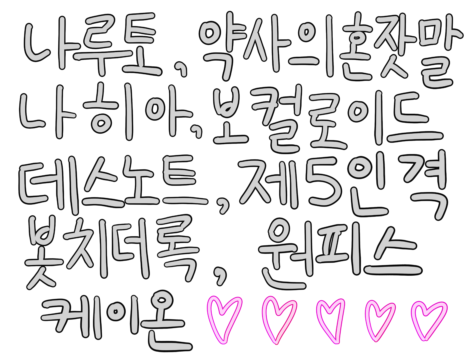 나루토, 약사의혼잣말
나히아, 보컬로이드
데스노트, 제5인격
봇치더록, 원피스
케이온♡♡♡♡♡